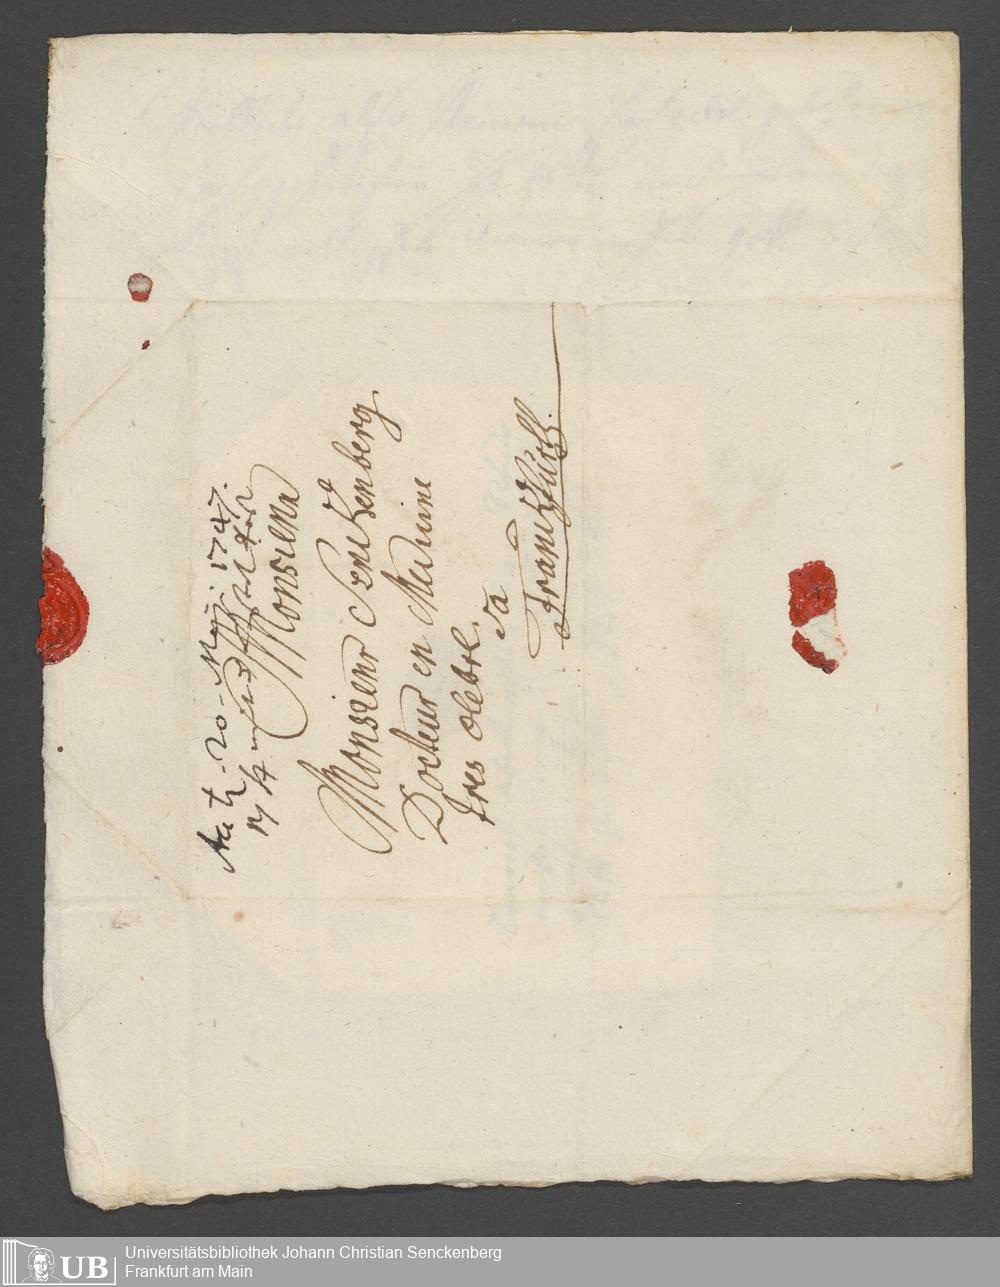 20. Maji. 1747.
Monsieur
Monsieur Senckenberg
Docteur en Medicine
tres celebre.
a
Franckfurth.
Universitätsbibliothek Johann Christian Senckenberg
Frankfurt am Main
UB